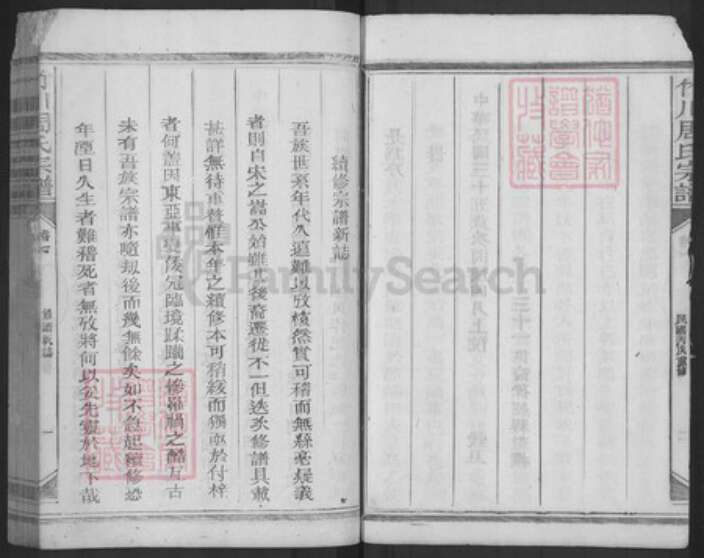 竹川周氏宗譜
民國丙戌重修
續修宗譜新誌
吾族世系年代久遠難以攷核然實可稽而無疑義
者則自宋之嵩公始雖其後裔遷徙不一但迭次修譜具載
甚詳無待重贅惟本年之續修本可稍緩而獨亟於付梓
者何蓋因東亞事變倭冦臨境蹂躪之慘罹禍之酷亙古
未有吾族宗譜亦隨刼後而幾無餘矣如不急起續修恐
年湮日久生者難稽死者無攷將何以安先靈於地下哉
竹川周氏宗譜
FamilySearch